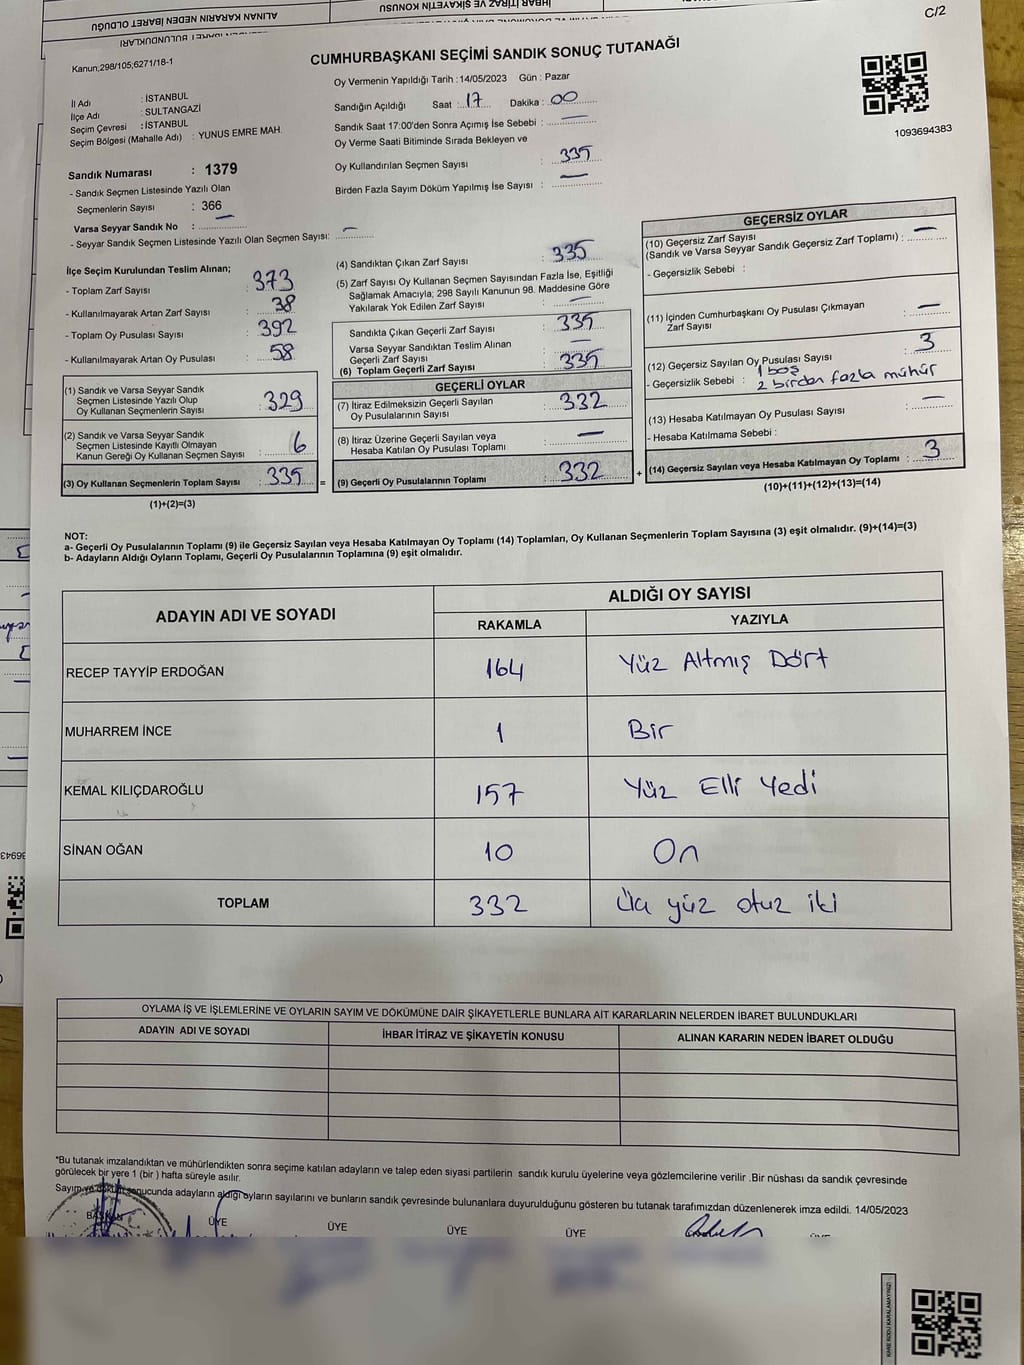 ALINAN KARARIN NEDEN İBARET OLDUĞU
İHBAR İTİRAZ VE ŞİKAYETİN KONUSU
C/2
CUMHURBAŞKANI SEÇİMİ SANDIK SONUÇ TUTANAĞI
Kanun;298/105;6271/18-1
Oy Vermenin Yapıldığı Tarih : 14/05/2023 Gün : Pazar
İl Adı : İSTANBUL
İlçe Adı : SULTANGAZİ
Seçim Çevresi : İSTANBUL
Seçim Bölgesi (Mahalle Adı) : YUNUS EMRE MAH.
Sandığın Açıldığı Saat : 17 Dakika : 00
Sandık Saat 17:00'den Sonra Açımış İse Sebebi : —
Oy Verme Saati Bitiminde Sırada Bekleyen ve
Oy Kullandırılan Seçmen Sayısı : 335
Birden Fazla Sayım Döküm Yapılmış İse Sayısı : —
1093694383
Sandık Numarası : 1379
- Sandık Seçmen Listesinde Yazılı Olan
Seçmenlerin Sayısı : 366
Varsa Seyyar Sandık No : —
- Seyyar Sandık Seçmen Listesinde Yazılı Olan Seçmen Sayısı: —
İlçe Seçim Kurulundan Teslim Alınan;
- Toplam Zarf Sayısı : 373
- Kullanılmayarak Artan Zarf Sayısı : 38
- Toplam Oy Pusulası Sayısı : 392
- Kullanılmayarak Artan Oy Pusulası : 58
(1) Sandık ve Varsa Seyyar Sandık
Seçmen Listesinde Yazılı Olup
Oy Kullanan Seçmenlerin Sayısı : 329
(2) Sandık ve Varsa Seyyar Sandık
Seçmen Listesinde Kayıtlı Olmayan
Kanun Gereği Oy Kullanan Seçmen Sayısı : 6
(3) Oy Kullanan Seçmenlerin Toplam Sayısı : 335 =
(1)+(2)=(3)
(4) Sandıktan Çıkan Zarf Sayısı : 335
(5) Zarf Sayısı Oy Kullanan Seçmen Sayısından Fazla İse, Eşitliği
Sağlamak Amacıyla; 298 Sayılı Kanunun 98. Maddesine Göre
Yakılarak Yok Edilen Zarf Sayısı : —
Sandıkta Çıkan Geçerli Zarf Sayısı : 335
Varsa Seyyar Sandıktan Teslim Alınan
Geçerli Zarf Sayısı : —
(6) Toplam Geçerli Zarf Sayısı : 335
GEÇERLİ OYLAR
(7) İtiraz Edilmeksizin Geçerli Sayılan
Oy Pusulalarının Sayısı : 332
(8) İtiraz Üzerine Geçerli Sayılan veya
Hesaba Katılan Oy Pusulası Toplamı : —
(9) Geçerli Oy Pusulalarının Toplamı : 332 +
GEÇERSİZ OYLAR
(10) Geçersiz Zarf Sayısı
(Sandık ve Varsa Seyyar Sandık Geçersiz Zarf Toplamı) : —
- Geçersizlik Sebebi :
(11) İçinden Cumhurbaşkanı Oy Pusulası Çıkmayan
Zarf Sayısı : —
(12) Geçersiz Sayılan Oy Pusulası Sayısı : 3
- Geçersizlik Sebebi : 1 boş
2 birden fazla mühür
(13) Hesaba Katılmayan Oy Pusulası Sayısı : —
- Hesaba Katılmama Sebebi :
(14) Geçersiz Sayılan veya Hesaba Katılmayan Oy Toplamı : 3
(10)+(11)+(12)+(13)=(14)
NOT:
a- Geçerli Oy Pusulalarının Toplamı (9) ile Geçersiz Sayılan veya Hesaba Katılmayan Oy Toplamı (14) Toplamları, Oy Kullanan Seçmenlerin Toplam Sayısına (3) eşit olmalıdır. (9)+(14)=(3)
b- Adayların Aldığı Oyların Toplamı, Geçerli Oy Pusulalarının Toplamına (9) eşit olmalıdır.
ADAYIN ADI VE SOYADI
ALDIĞI OY SAYISI
RAKAMLA YAZIYLA
RECEP TAYYİP ERDOĞAN 164 Yüz Altmış Dört
MUHARREM İNCE 1 Bir
KEMAL KILIÇDAROĞLU 157 Yüz Elli Yedi
SİNAN OĞAN 10 On
TOPLAM 332 Üç yüz otuz iki
OYLAMA İŞ VE İŞLEMLERİNE VE OYLARIN SAYIM VE DÖKÜMÜNE DAİR ŞİKAYETLERLE BUNLARA AİT KARARLARIN NELERDEN İBARET BULUNDUKLARI
ADAYIN ADI VE SOYADI İHBAR İTİRAZ VE ŞİKAYETİN KONUSU ALINAN KARARIN NEDEN İBARET OLDUĞU
*Bu tutanak imzalandıktan ve mühürlendikten sonra seçime katılan adayların ve talep eden siyasi partilerin sandık kurulu üyelerine veya gözlemcilerine verilir .Bir nüshası da sandık çevresinde
görülecek bir yere 1 (bir ) hafta süreyle asılır.
Sayım ve döküm sonucunda adayların aldığı oyların sayılarını ve bunların sandık çevresinde bulunanlara duyurulduğunu gösteren bu tutanak tarafımızdan düzenlenerek imza edildi. 14/05/2023
BAŞKAN ÜYE ÜYE ÜYE ÜYE